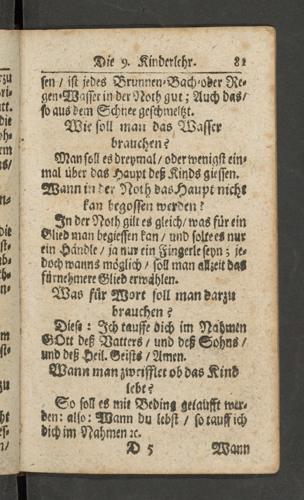 Die 9. Kinderlehr. 81
sen / ist jedes Brunnen-Bach-oder Re-
gen-Wasser in der Noth gut; Auch das /
so aus dem Schnee geschmeltzt.
Wie soll man das Wasser
brauchen?
Man soll es dreymal / oder wenigst ein-
mal über das Haupt deß Kinds giessen.
Wann in der Noth das Haupt nicht
kan begossen werden?
In der Noth gilt es gleich / was für ein
Glied man begiessen kan / und solte es nur
ein Händle / ja nur ein Fingerle seyn; je-
doch wanns möglich / soll man allzeit das
fürnehmere Glied erwählen.
Was für Wort soll man darzu
brauchen?
Diese: Ich tauffe dich im Nahmen
GOtt deß Vatters / und deß Sohns /
und deß Heil. Geists / Amen.
Wann man zweifflet ob das Kind
lebt?
So soll es mit Beding getaufft wer-
den: also: Wann du lebst / so tauff ich
dich im Nahmen ꝛc.
D 5 Wann